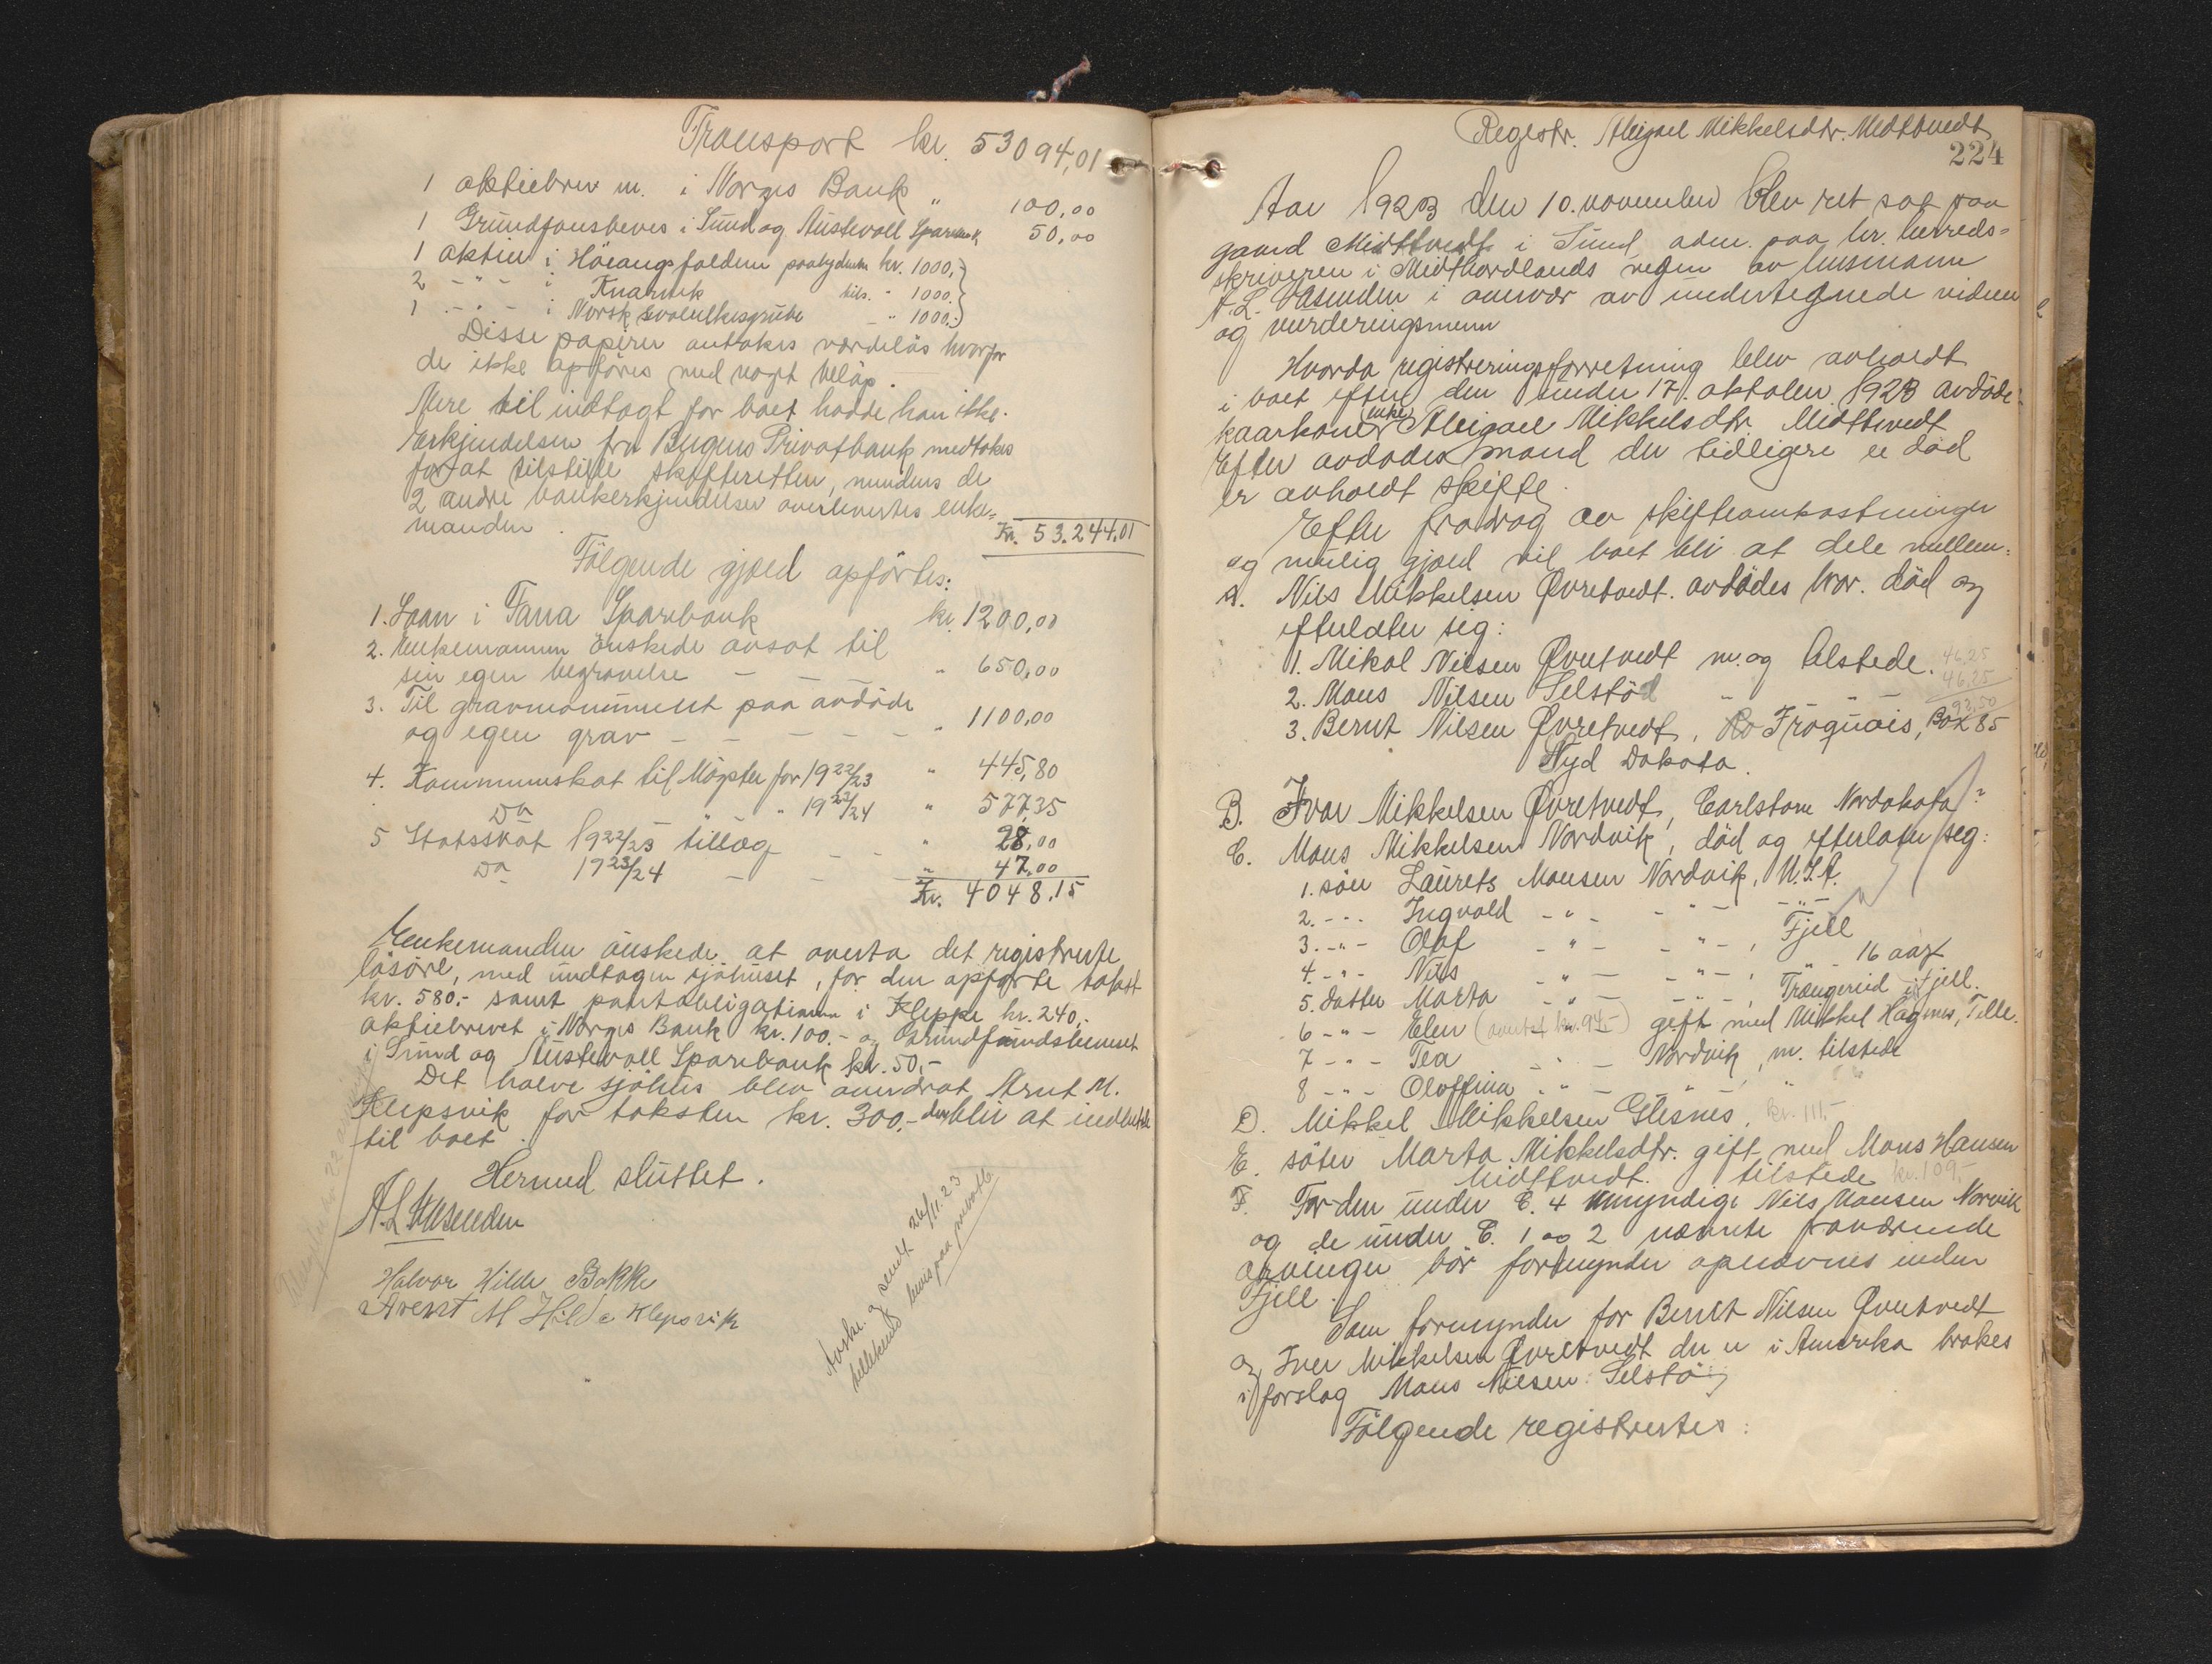 Transport kr. 53094,01
1 aktiebrev m. i Norges Bank " 100,00
1 Grundfonsbevis i Sund og Austevoll Sparebank 50,00
1 aktie i Höiangsfaldene paalydende kr. 1000,-
2 - " - i Knarvik tils. " 1000.-
1 - " - i Norsk svovelkisgrube - " 1000.-
Disse papirer antokes værdilös hvorfor
de ikke opföres med noget belöp.
Mere til indtægt for boet hadde han ikke.
Erkjendelsen fra Bergens Privatbank medtokes
for at tilstille skifteretten, mendens de
2 andre bankerkjendelser overlevertes enke-
manden. Kr. 53.244.01
Fölgende gjæld opförtes:
1. Laan i Fana Sparebank kr. 1200,00
2. Enkemannen önskede avsat til
sin egen begravelse - - - " 650,00
3. Til gravmonument paa avdöde
og egen grav - - - - - " 1100,00
4. Kommuneskat til Mögster for 1922/23 " 445,80
Do " " 1923/24 " 577,35
5 Statsskat 1922/23 tillæg - - " 28,00
Do 1923/24 - - - " 47,00
Kr. 4048.15
Enkemanden önskede at overta det registrerte
lösöre, med undtagen sjöhuset, for den opförte takst
kr. 580.- samt pantobligationen i Kleppe kr. 240,-
aktiebrevet i Norges Bank kr. 100.- og Grundfundsbeviset
i Sund og Austevoll Sparebank kr. 50,-
Det halve sjöhus blev overdrat Arnt M.
Klepsvik for taksten kr. 300.- der blir at indbetale
til boet.
Hermed sluttet.
A. L. Vasenden
Halvor Hilde Bakke
Arent M Hilde Klepsvik
Avskr. og sendt 26/11.23
Registr. Abigael Mikkelsdtr. Midttvedt
224
Aar 1923 den 10. november blev ret sat paa
gaard Midttvedt i Sund, adm. paa hr. herreds-
skriveren i Midthordlands vegne av lensmann
A. L. Vasenden i overvær av undertegnede vidner
og vurderingsmenn
Hvorda registreringsforretning blev avholdt
i boet efter den under 17. oktober 1923 avdöde
kaarkone (enke) Abigael Mikkelsdtr Midttvedt
Efter avdödes mand der tidligere er död
er avholdt skifte.
Efter fradrag av skifteomkostninger
og mulig gjæld vil boet bli at dele mellem:
A. Nils Mikkelsen Övretvedt. avdödes bror. död og
efterlater seg:
1. Mikal Nilsen Övretvedt m. og tilstede. 46,25
2. Mons Nilsen Selstöd " " 46,25
92,50
3. Bernt Nilsen Övretvedt, Ro Iroquois, Box 85
Syd Dakota.
B. Ivar Mikkelsen Övretvedt, Carlstone Nordakota?
C. Mons Mikkelsen Nordvik, död og efterlater seg:
1. sön Laurets Monsen Nordvik, U.S.A.
2. - " - Ingvald - " - - " - - " -
3. - " - Olaf - " - - " -, Fjell
4. - " - Nils " - - " -, " - 16 aar
5. datter Marta - " - - " -, Trængereid i Fjell.
6 - " - Elen (avertat kr. 94.-) gift med Mikkel Hagenes, Telle.
7 - " - Tea - " - Nordvik, m. tilstede
8 - " - Oloffina - " - " , "
D. Mikkel Mikkelsen Glesnes, kr. 111.-
E. söster Marta Mikkelsdtr. gift med Mons Hansen
Midttvedt. tilstede kr. 109.-
F. For den under C. 4 umyndige Nils Monsen Norvik
og de under C. 1 og 2 nævnte fraværende
arvinger bör formynder opnævnes inden
Fjell.
Som formynder for Bernt Nilsen Övretvedt
og Iver Mikkelsen Övretvedt der er i Amerika brakes
i forslag Mons Nilsen Selstö
Fölgende registrertes: